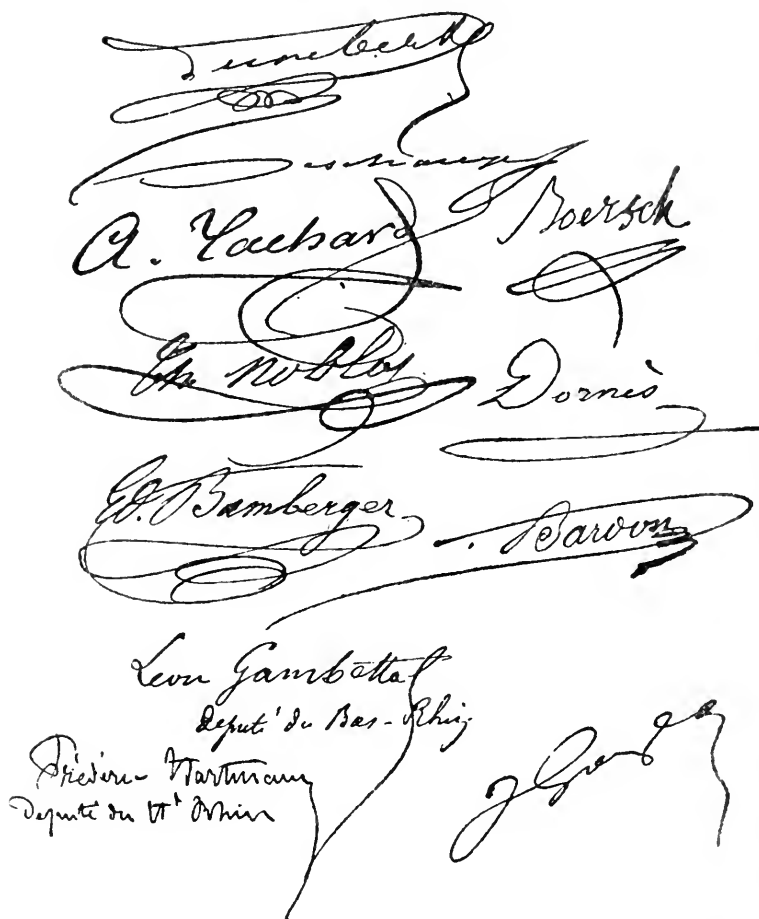 A. Tachard
Boersch
Ch. Noblot
Dornès
Ed. Bamberger
Bardon
Léon Gambetta
député du Bas-Rhin
Fréderic Hartmann
Deputé du Ht Rhin